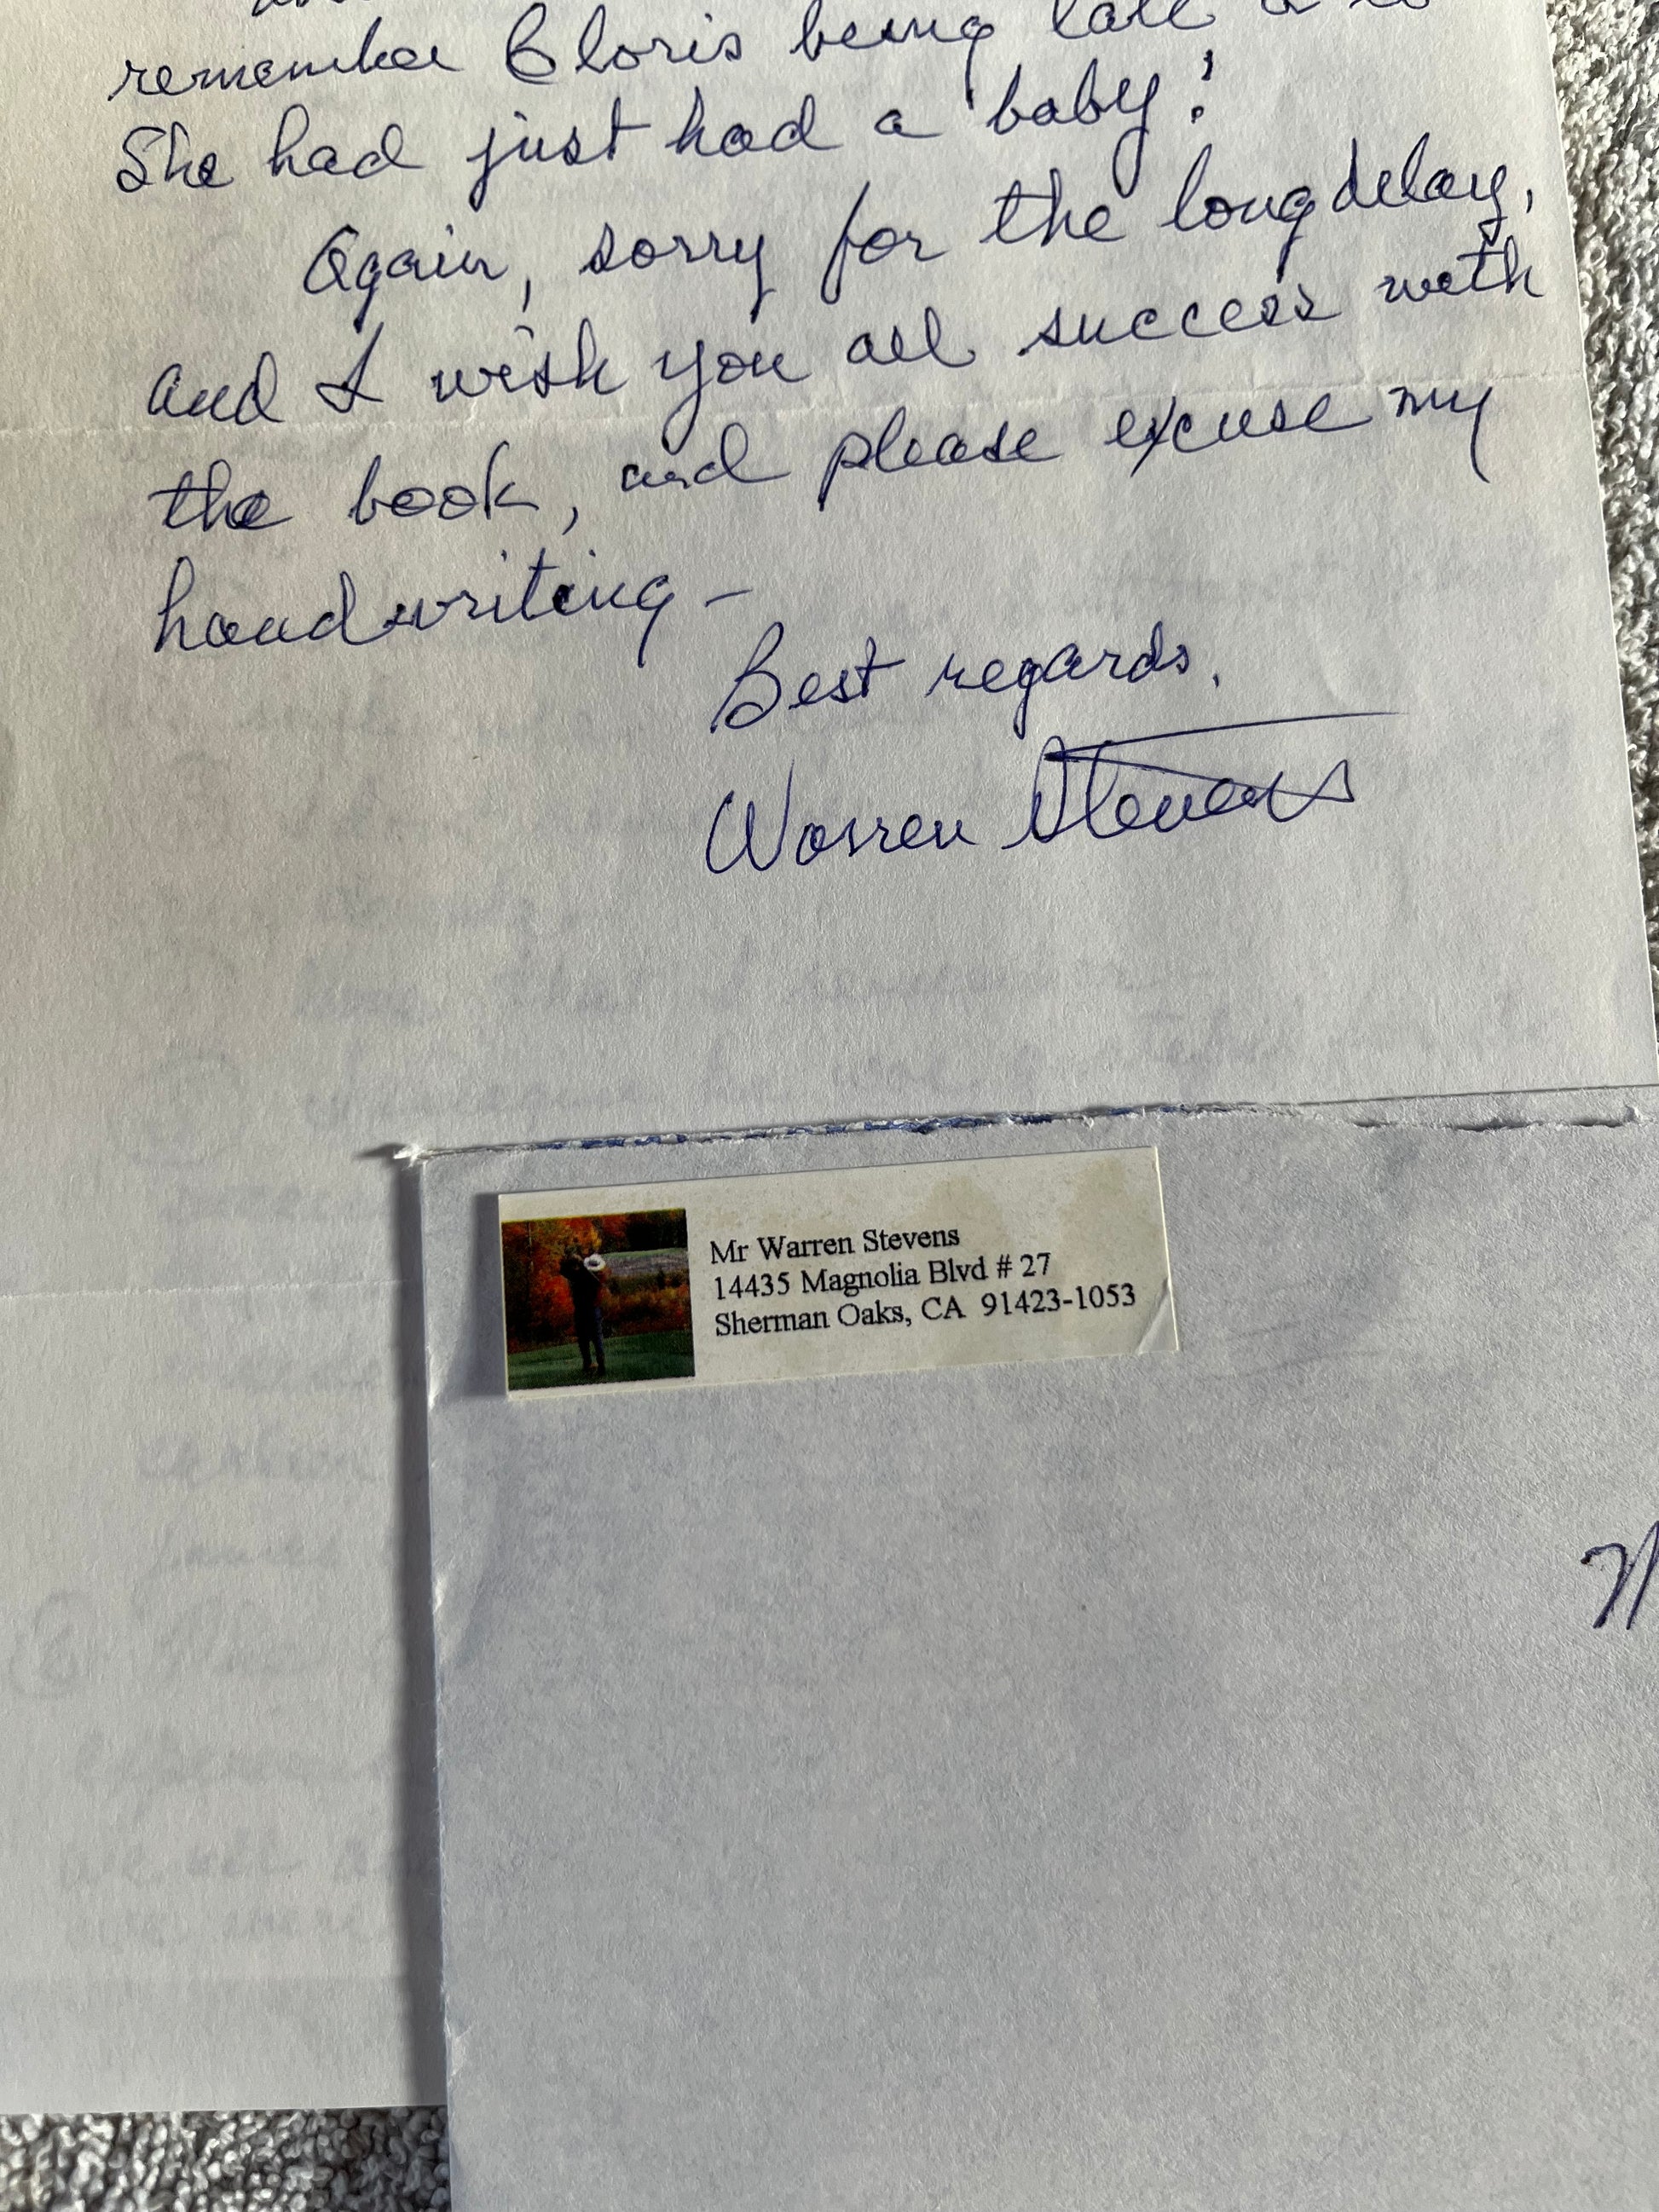 remember Cloris being late
She had just had a baby!
Again, sorry for the long delay,
and I wish you all success with
the book, and please excuse my
handwriting –
Best regards,
Warren Stevens
Mr Warren Stevens
14435 Magnolia Blvd # 27
Sherman Oaks, CA 91423-1053